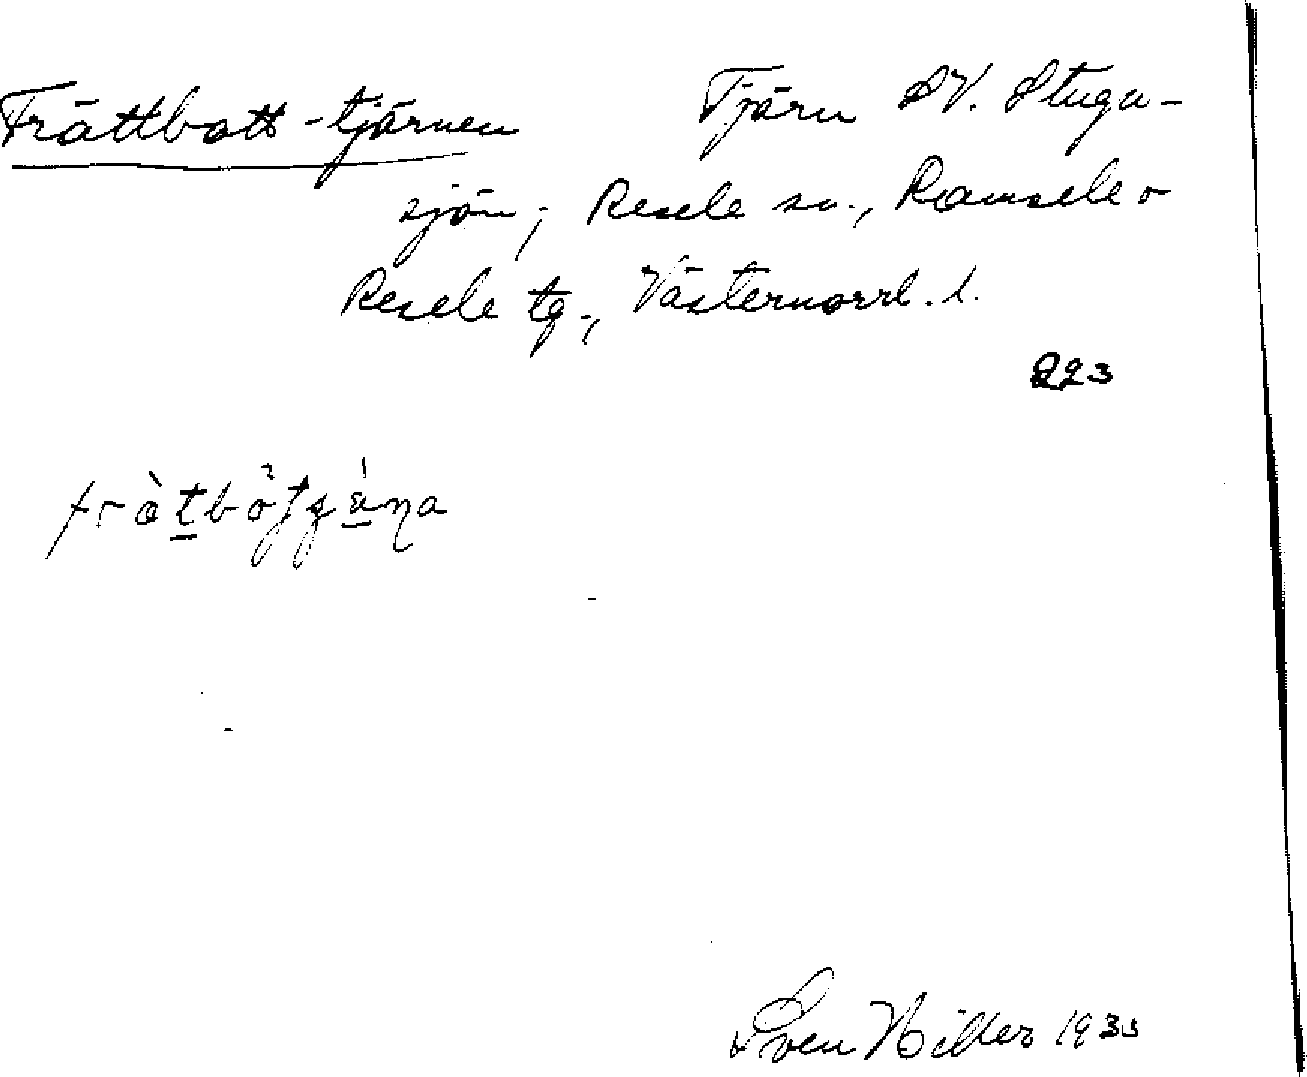 Frättbott-tjärnen Tjärn SV. Stuga-
sjön; Resele sn., Ramsele o
Resele tg., Västernorrl. l.
223
Sven Hiller 1935